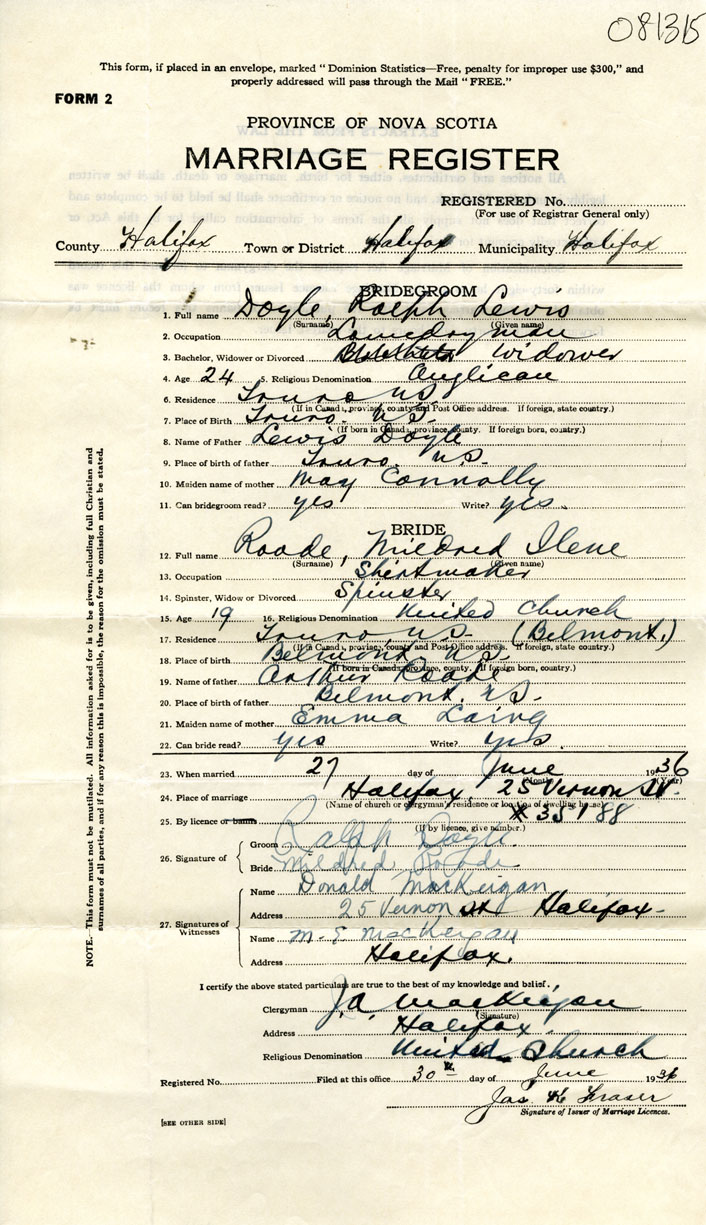 081315
This form, if placed in an envelope, marked "Dominion Statistics—Free, penalty for improper use $300," and
properly addressed will pass through the Mail "FREE."
FORM 2
PROVINCE OF NOVA SCOTIA
MARRIAGE REGISTER
REGISTERED No.
(For use of Registrar General only)
County Halifax Town or District Halifax Municipality Halifax
BRIDEGROOM
1. Full name Doyle, Ralph Lewis
(Surname) (Given name)
2. Occupation Laundryman
3. Bachelor, Widower or Divorced Widower
4. Age 24 5. Religious Denomination Anglican
6. Residence Truro N.S.
(If in Canada, province, county and Post Office address. If foreign, state country.)
7. Place of Birth Truro. N.S.
(If born in Canada, province, county. If foreign born, country.)
8. Name of Father Lewis Doyle
9. Place of birth of father Truro. N.S.
10. Maiden name of mother May Connolly
11. Can bridegroom read? yes Write? yes.
BRIDE
12. Full name Roode, Mildred Ilene
(Surname) (Given name)
13. Occupation Shirtmaker
14. Spinster, Widow or Divorced Spinster
15. Age 19 16. Religious Denomination United Church
17. Residence Truro N.S. (Belmont.)
(If in Canada, province, county and Post Office address. If foreign, state country.)
18. Place of birth Belmont N.S.
(If born in Canada, province, county. If foreign born, country.)
19. Name of father Arthur Roode
20. Place of birth of father Belmont, N.S.
21. Maiden name of mother Emma Laing
22. Can bride read? yes Write? yes.
23. When married 27 day of June 1936
(Month) (Year)
24. Place of marriage Halifax, 25 Vernon St.
(Name of church or clergyman's residence or location of dwelling house)
25. By licence or banns # 35188
(If by licence, give number.)
26. Signature of Groom Ralph Doyle
Bride Mildred Roode
27. Signatures of Witnesses Name Donald MacKeigan
Address 25 Vernon St Halifax
Name M. S. MacKeigan
Address Halifax.
I certify the above stated particulars are true to the best of my knowledge and belief.
Clergyman J. A. MacKeigan
(Signature)
Address Halifax
Religious Denomination United Church
Registered No. Filed at this office 30th day of June 1936
Jas H Fraser
Signature of Issuer of Marriage Licences.
[SEE OTHER SIDE]
NOTE.—This form must not be mutilated. All information asked for is to be given, including full Christian and
surnames of all parties, and if for any reason this is impossible, the reason for the omission must be stated.